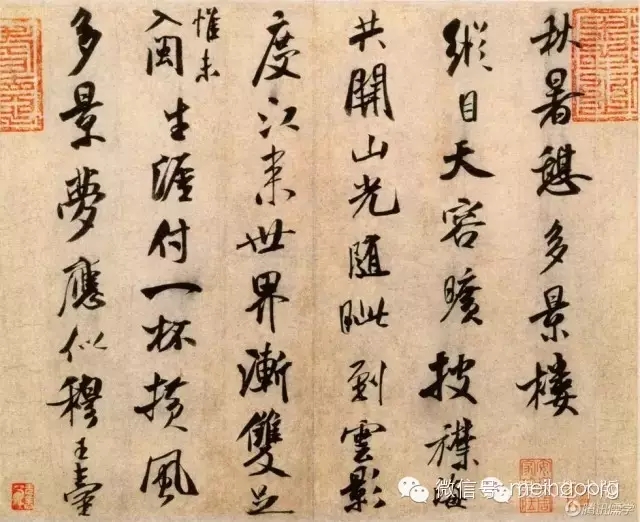 秋暑憩多景樓
縱目天容曠披襟
共開山光隨眦到雲影
度江来世界漸雙足
惟未
入閩生涯付一杯橫風
多景夢應似穆王臺
微信号: meihgobrg
腾讯儒学